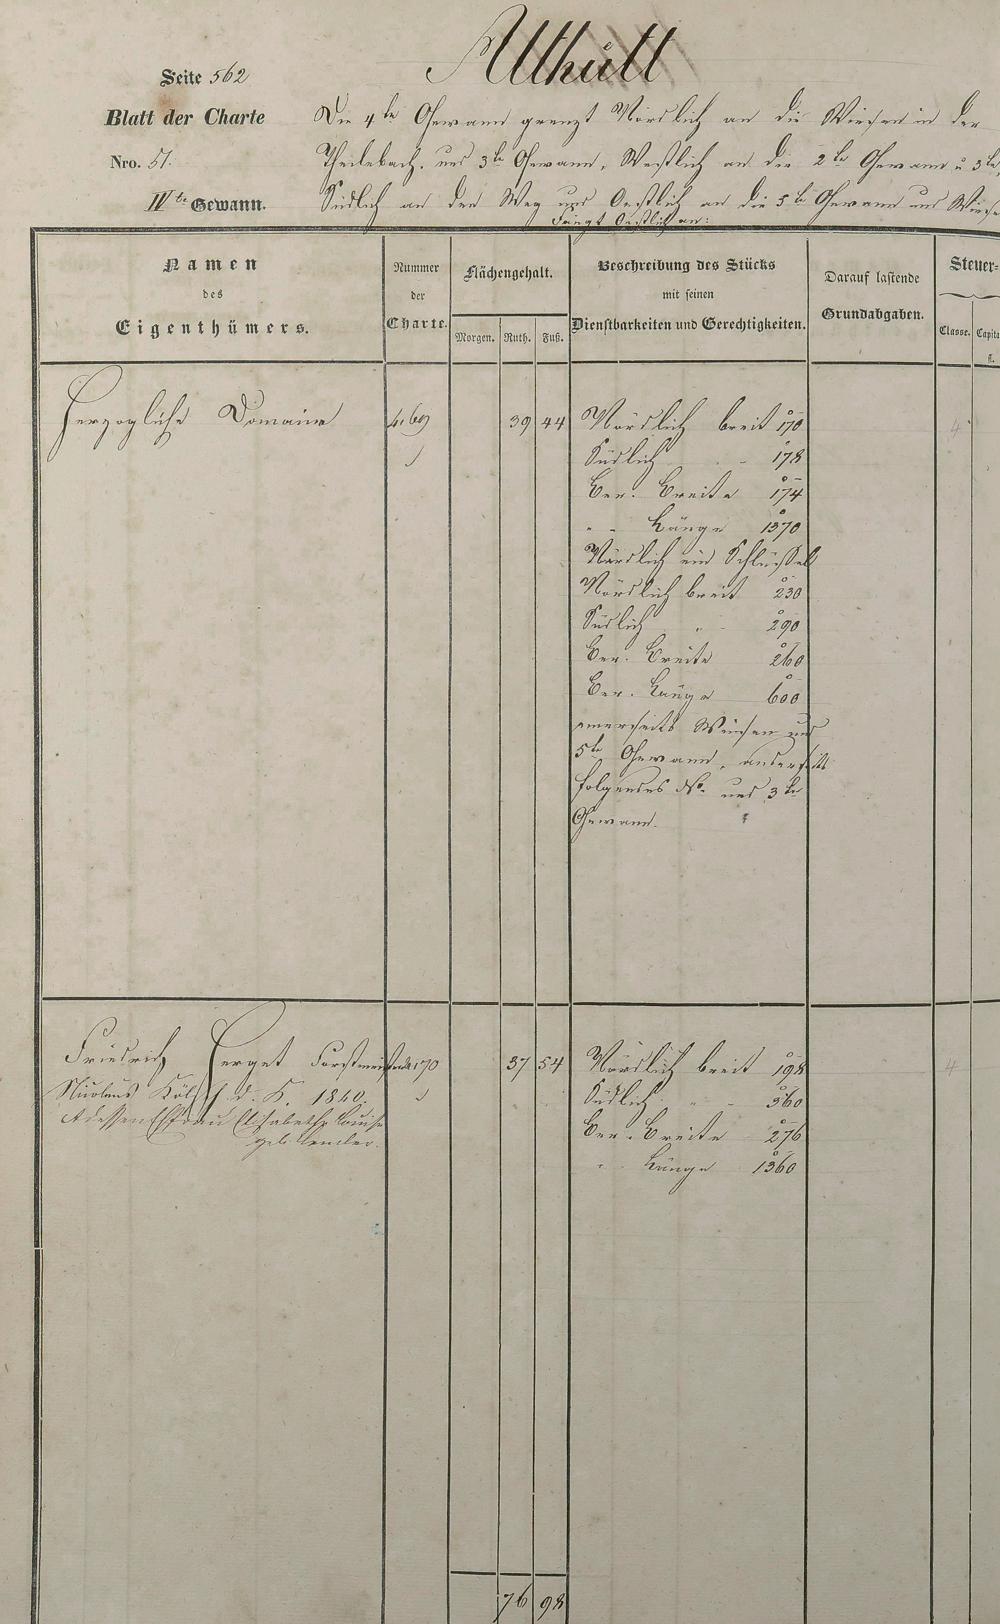 Althütt
Seite 562
Blatt der Charte
Nro. 51.
IVte Gewann.
Die 4te Gewann grenzt Nördlich an die Wiesen in der
Theilebach. und 3te Gewann, Westlich an die 2te Gewann u 3te,
Südlich an den Weg und Oestlich an die 5te Gewann und Wiese
Fängt Oestlich an:
Namen
des
Eigenthümers.
Nummer
der
Charte.
Flächengehalt.
Morgen. Ruth. Fuß.
Beschreibung des Stücks
mit seinen
Dienstbarkeiten und Gerechtigkeiten.
Darauf lastende
Grundabgaben.
Steuer-
Classe. Capita
fl.
Herzogliche Domaine 4169 39 44 Nördlich breit 170 4
Südlich " - 178
Ber. Breite 174
" - Länge 1370
Nördlich ein Schlüssel
Nördlich breit 230
Südlich " - 290
Ber. Breite 260
Ber. Länge 600
einerseits Wiesen und
5te Gewann, anderseits
folgendes No. und 3te
Gewann.
Friedrich Herget Forstmeister 4170 37 54 Nördlich breit 198 4
Nicolaus Kölsch d. K. 1840. Südlich " - 360
Adessen Ehfrau Elisabethe Louise Ber. Breite 276
geb. Lemler. " Länge 1360
76 98